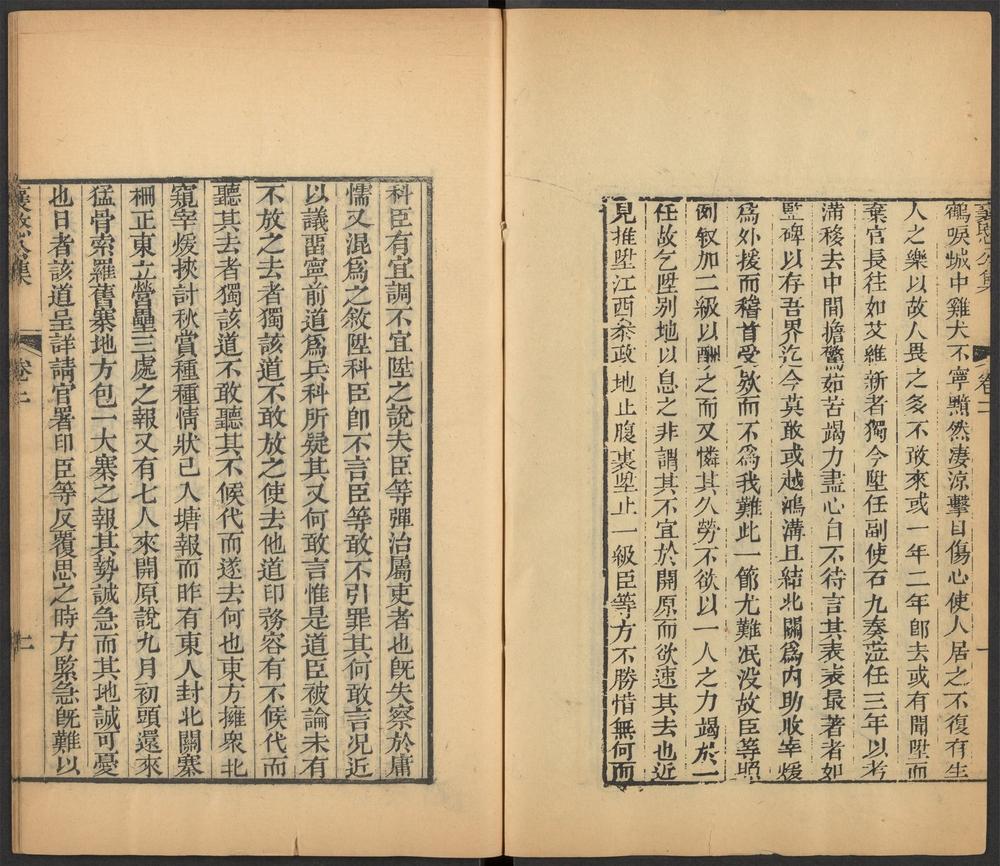 鶴唳城中雞犬不寧黯然淒涼擊目傷心使人居之不復有生
人之樂以故人畏之多不敢來或一年二年卽去或有聞陞而
棄官長往如艾維新者獨今陞任副使石九奏蒞任三年以考
滿移去中間擔驚茹苦竭力盡心自不待言其表表最著者如
豎碑以存吾界迄今莫敢或越鴻溝且結北關爲內助收宰煖
爲外援而稽首受欵而不爲我難此一節尤難泯没故臣等照
例叙加二級以酬之而又憐其久勞不欲以一人之力竭於一
任故乞陞別地以息之非謂其不宜於開原而欲速其去也近
見推陞江西叅政地止腹裏陞止一級臣等方不勝惜無何而
襄愍公集
卷二
一
科臣有宜調不宜陞之說夫臣等彈治屬吏者也旣失察於庸
懦又混爲之敘陞科臣卽不言臣等敢不引罪其何敢言况近
以議畱寧前道爲兵科所疑其又何敢言惟是道臣被論未有
不放之去者獨該道不敢放之使去他道印務容有不候代而
聽其去者獨該道不敢聽其不候代而遂去何也東方擁衆北
窺宰煖挾討秋賞種種情狀已入塘報而昨有東人封北關寨
柵正東立營壘三處之報又有七人來開原說九月初頭還來
猛骨索羅舊寨地方包一大寨之報其勢誠急而其地誠可憂
也日者該道呈詳請官署印臣等反覆思之時方緊急旣難以
襄愍公集
卷二
二